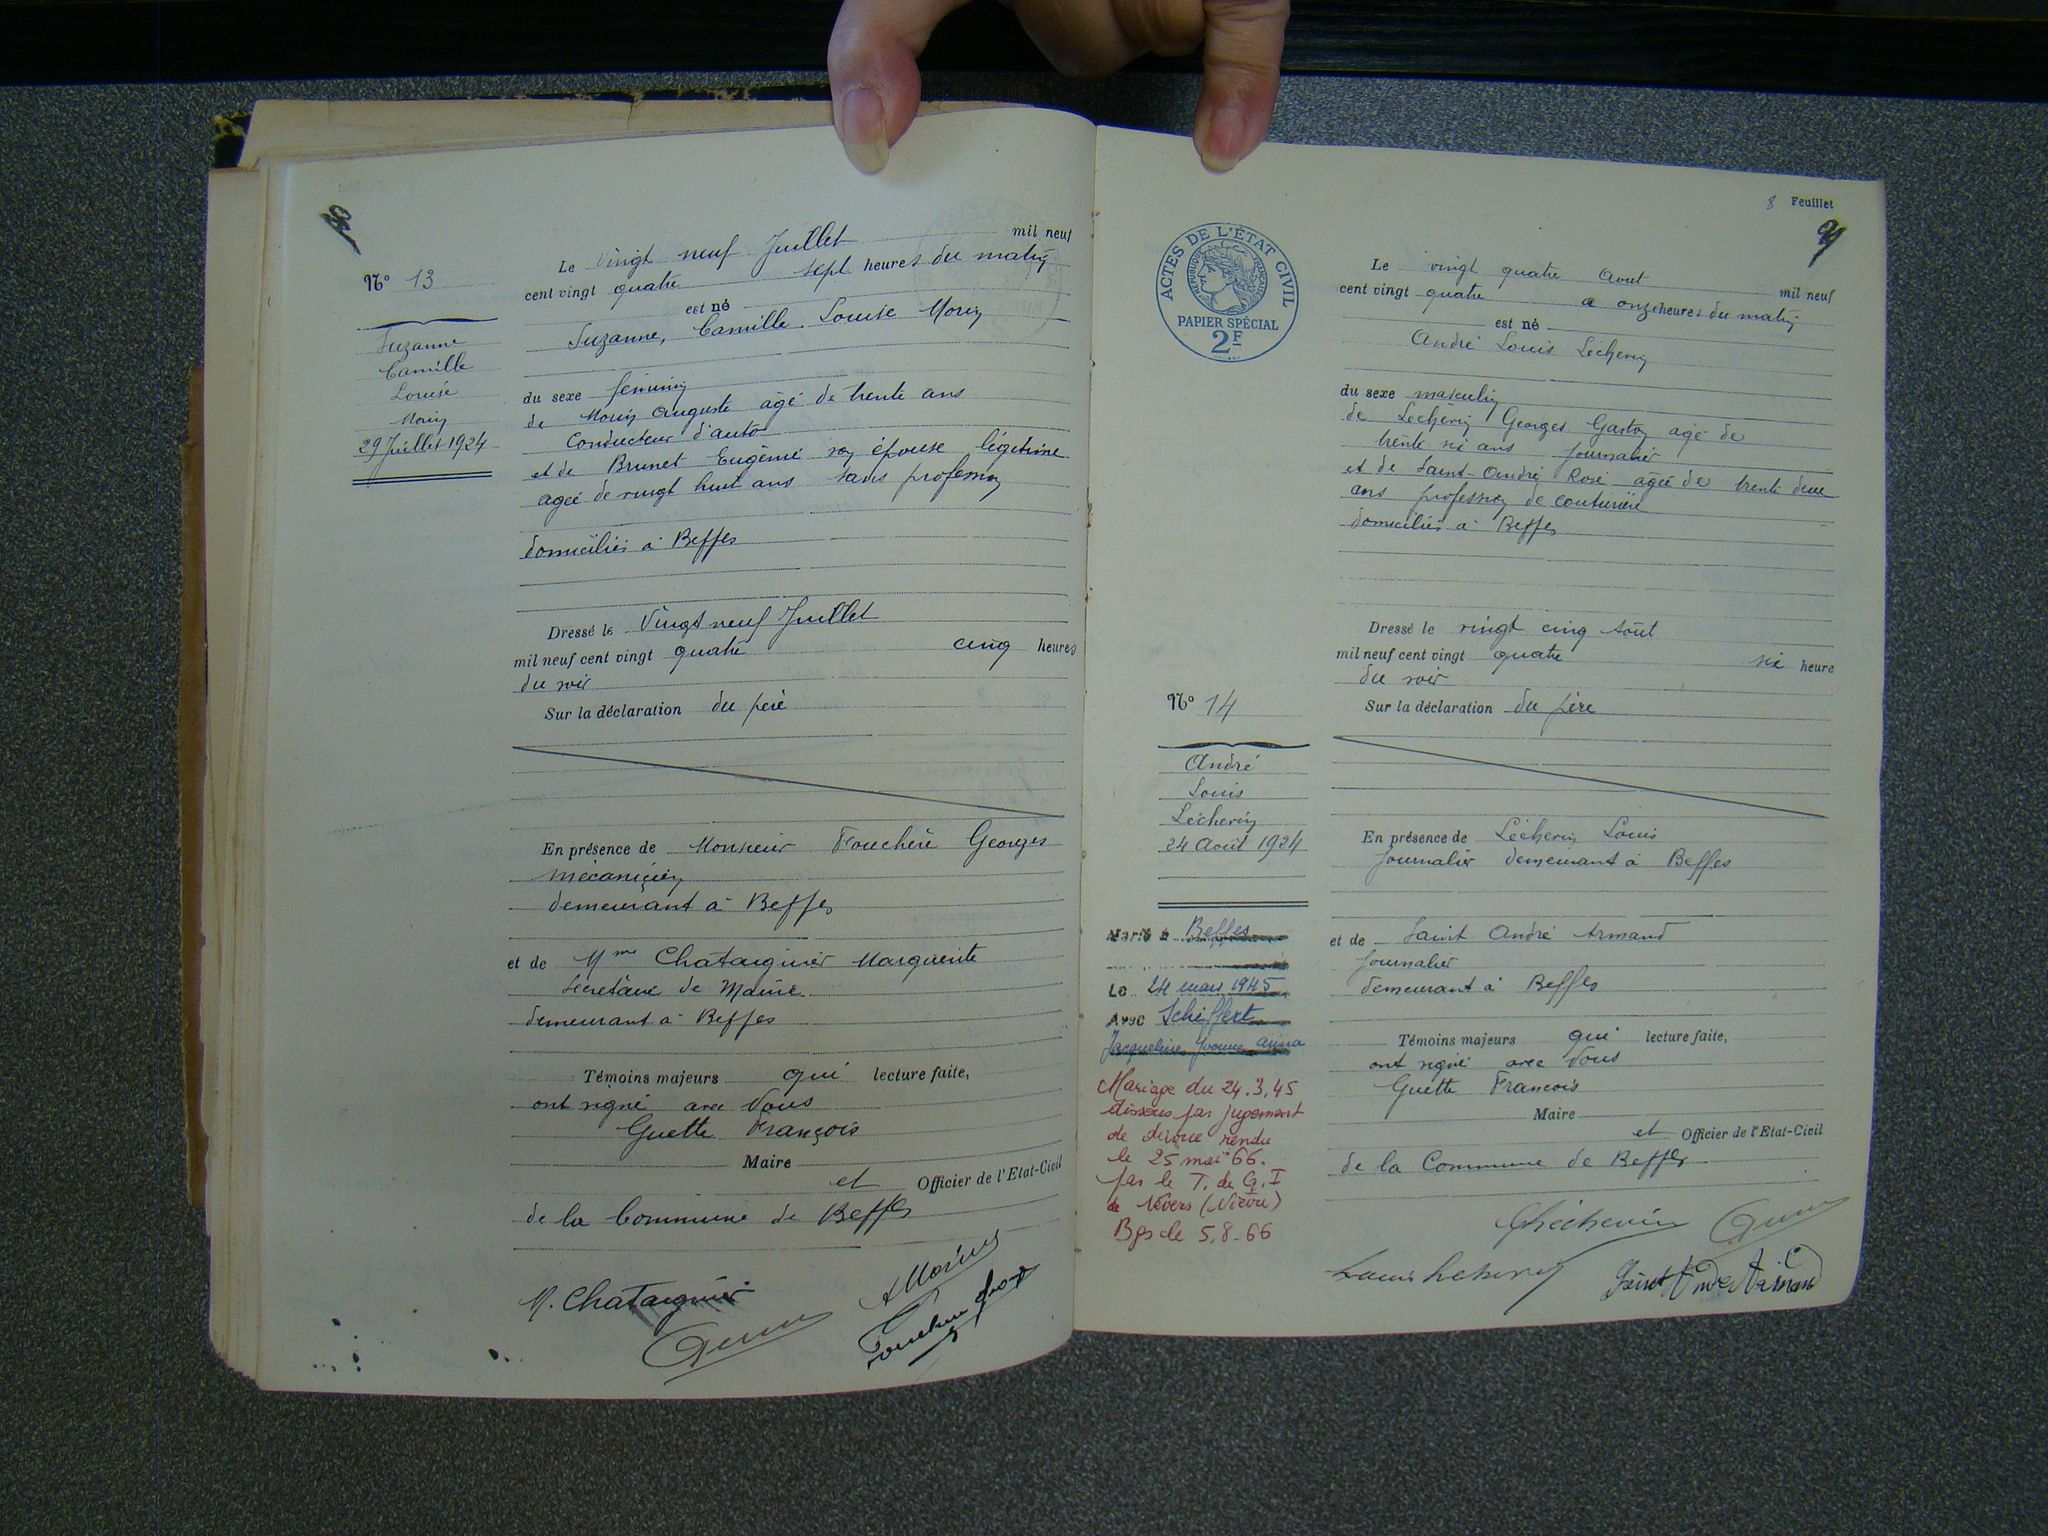 N° 13
Suzanne
Camille
Louise
Morin
29 Juillet 1924
Le vingt neuf Juillet mil neuf
cent vingt quatre sept heures du matin
est né
Suzanne, Camille Louise Morin
du sexe féminin
de Morin Auguste âgé de trente ans
Conducteur d'auto
et de Brunet Eugénie son épouse légitime
agée de vingt huit ans sans profession
domiciliés à Beffes
Dressé le Vingt neuf Juillet
mil neuf cent vingt quatre cinq heures
du soir
Sur la déclaration du père
En présence de Monsieur Fouchère Georges
mécanicien
demeurant à Beffes
et de Mme Chataignier Marguerite
Secrétaire de Mairie
demeurant à Beffes
Témoins majeurs qui lecture faite,
ont signé avec Nous
Guette François
Maire
et Officier de l'Etat-Civil
de la Commune de Beffes
M. Chataignier
AMorin
8 Feuillet
ACTES DE L'ÉTAT CIVIL
RÉPUBLIQUE FRANÇAISE
PAPIER SPÉCIAL
2F
Le vingt quatre Aout mil neuf
cent vingt quatre a onze heures du matin
est né
André Louis Lécherin
du sexe masculin
de Lécherin Georges Gaston agé de
trente six ans journalier
et de Saint-André Rose agée de trente deux
ans profession de couturière
domiciliés à Beffes
Dressé le vingt cinq Août
mil neuf cent vingt quatre six heure
du soir
Sur la déclaration du père
N° 14
André
Louis
Lécherin
24 Août 1924
En présence de Lécherin Louis
Journalier demeurant à Beffes
et de Saint André Armand
Journalier
demeurant à Beffes
Témoins majeurs qui lecture faite,
ont signé avec Nous
Guette Francois
Maire
et Officier de l'Etat-Civil
de la Commune de Beffes
Marié à Beffes
Le 24 mars 1945
Avec Scheffert
Jacqueline Yvonne Anna
Mariage du 24.3.45
dissous par jugement
de divorce rendu
le 25 mai 66.
par le T. de G.I
de Nevers (Nièvre)
Bges le 5.8.66
GLécherin
Louis Lécherin
Saint André Armand